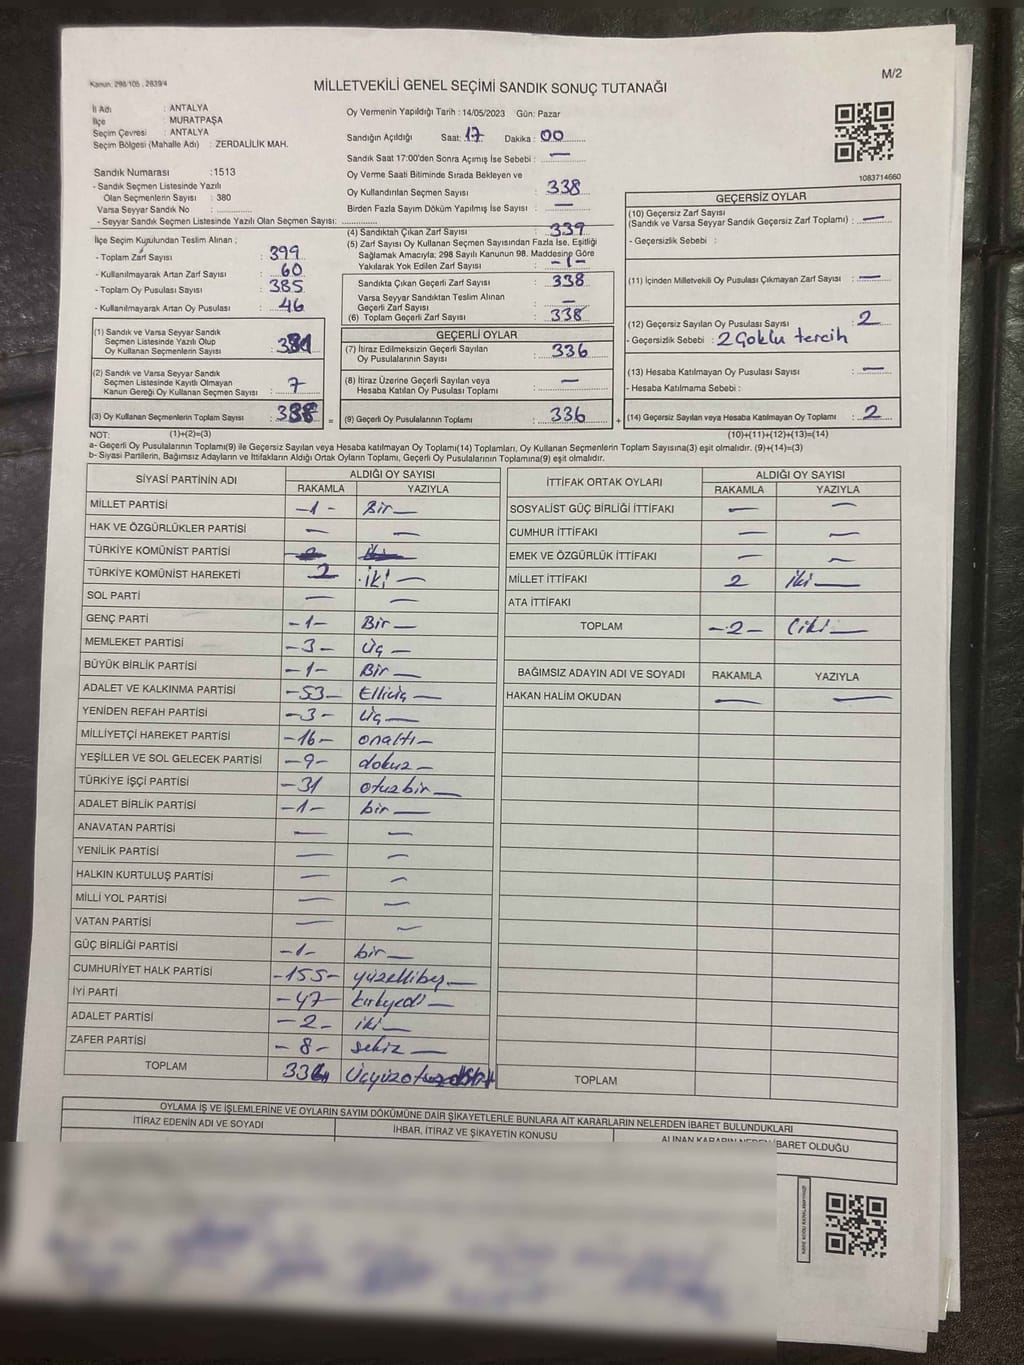 Kanun: 298/105 , 2839/4
M/2
MİLLETVEKİLİ GENEL SEÇİMİ SANDIK SONUÇ TUTANAĞI
İl Adı : ANTALYA
İlçe : MURATPAŞA
Seçim Çevresi : ANTALYA
Seçim Bölgesi (Mahalle Adı) : ZERDALİLİK MAH.
Sandık Numarası :1513
- Sandık Seçmen Listesinde Yazılı
Olan Seçmenlerin Sayısı : 380
Varsa Seyyar Sandık No :
- Seyyar Sandık Seçmen Listesinde Yazılı Olan Seçmen Sayısı:
İlçe Seçim Kurulundan Teslim Alınan ;
- Toplam Zarf Sayısı : 399
- Kullanılmayarak Artan Zarf Sayısı : 60
- Toplam Oy Pusulası Sayısı : 385
- Kullanılmayarak Artan Oy Pusulası : 46
(1) Sandık ve Varsa Seyyar Sandık
Seçmen Listesinde Yazılı Olup
Oy Kullanan Seçmenlerin Sayısı :
(2) Sandık ve Varsa Seyyar Sandık
Seçmen Listesinde Kayıtlı Olmayan
Kanun Gereği Oy Kullanan Seçmen Sayısı : 7
(3) Oy Kullanan Seçmenlerin Toplam Sayısı : 338
Oy Vermenin Yapıldığı Tarih : 14/05/2023 Gün: Pazar
Sandığın Açıldığı Saat: 17 Dakika : 00
Sandık Saat 17:00'den Sonra Açımış İse Sebebi : —
Oy Verme Saati Bitiminde Sırada Bekleyen ve
Oy Kullandırılan Seçmen Sayısı : 338
Birden Fazla Sayım Döküm Yapılmış İse Sayısı : —
(4) Sandıktan Çıkan Zarf Sayısı : 339
(5) Zarf Sayısı Oy Kullanan Seçmen Sayısından Fazla İse, Eşitliği
Sağlamak Amacıyla; 298 Sayılı Kanunun 98. Maddesine Göre
Yakılarak Yok Edilen Zarf Sayısı : -1-
Sandıkta Çıkan Geçerli Zarf Sayısı : 338
Varsa Seyyar Sandıktan Teslim Alınan
Geçerli Zarf Sayısı : —
(6) Toplam Geçerli Zarf Sayısı : 338
GEÇERLİ OYLAR
(7) İtiraz Edilmeksizin Geçerli Sayılan
Oy Pusulalarının Sayısı : 336
(8) İtiraz Üzerine Geçerli Sayılan veya
Hesaba Katılan Oy Pusulası Toplamı : —
= (9) Geçerli Oy Pusulalarının Toplamı : 336 +
1083714660
GEÇERSİZ OYLAR
(10) Geçersiz Zarf Sayısı
(Sandık ve Varsa Seyyar Sandık Geçersiz Zarf Toplamı) : —
- Geçersizlik Sebebi :
(11) İçinden Milletvekili Oy Pusulası Çıkmayan Zarf Sayısı : —
(12) Geçersiz Sayılan Oy Pusulası Sayısı : 2
- Geçersizlik Sebebi : 2 Çoklu tercih
(13) Hesaba Katılmayan Oy Pusulası Sayısı : —
- Hesaba Katılmama Sebebi :
(14) Geçersiz Sayılan veya Hesaba Katılmayan Oy Toplamı : 2
NOT: (1)+(2)=(3) (10)+(11)+(12)+(13)=(14)
a- Geçerli Oy Pusulalarının Toplamı(9) ile Geçersiz Sayılan veya Hesaba katılmayan Oy Toplamı(14) Toplamları, Oy Kullanan Seçmenlerin Toplam Sayısına(3) eşit olmalıdır. (9)+(14)=(3)
b- Siyasi Partilerin, Bağımsız Adayların ve İttifakların Aldığı Ortak Oyların Toplamı, Geçerli Oy Pusulalarının Toplamına(9) eşit olmalıdır.
SİYASİ PARTİNİN ADI ALDIĞI OY SAYISI
RAKAMLA YAZIYLA
MİLLET PARTİSİ -1- Bir —
HAK VE ÖZGÜRLÜKLER PARTİSİ — —
TÜRKİYE KOMÜNİST PARTİSİ
TÜRKİYE KOMÜNİST HAREKETİ 2 iki —
SOL PARTİ — —
GENÇ PARTİ -1- Bir —
MEMLEKET PARTİSİ -3- Üç —
BÜYÜK BİRLİK PARTİSİ -1- Bir —
ADALET VE KALKINMA PARTİSİ -53- Elliüç —
YENİDEN REFAH PARTİSİ -3- Üç —
MİLLİYETÇİ HAREKET PARTİSİ -16- onaltı —
YEŞİLLER VE SOL GELECEK PARTİSİ -9- dokuz —
TÜRKİYE İŞÇİ PARTİSİ -31 otuzbir —
ADALET BİRLİK PARTİSİ -1- bir —
ANAVATAN PARTİSİ — —
YENİLİK PARTİSİ — —
HALKIN KURTULUŞ PARTİSİ — —
MİLLİ YOL PARTİSİ — —
VATAN PARTİSİ — —
GÜÇ BİRLİĞİ PARTİSİ -1- bir —
CUMHURİYET HALK PARTİSİ -155- yüzellibeş —
İYİ PARTİ -47- kırkyedi —
ADALET PARTİSİ -2- iki —
ZAFER PARTİSİ -8- sekiz —
TOPLAM
İTTİFAK ORTAK OYLARI ALDIĞI OY SAYISI
RAKAMLA YAZIYLA
SOSYALİST GÜÇ BİRLİĞİ İTTİFAKI — —
CUMHUR İTTİFAKI — —
EMEK VE ÖZGÜRLÜK İTTİFAKI — —
MİLLET İTTİFAKI 2 iki —
ATA İTTİFAKI
TOPLAM -2- (iki —
BAĞIMSIZ ADAYIN ADI VE SOYADI RAKAMLA YAZIYLA
HAKAN HALİM OKUDAN — —
TOPLAM
OYLAMA İŞ VE İŞLEMLERİNE VE OYLARIN SAYIM DÖKÜMÜNE DAİR ŞİKAYETLERLE BUNLARA AİT KARARLARIN NELERDEN İBARET BULUNDUKLARI
İTİRAZ EDENİN ADI VE SOYADI
İHBAR, İTİRAZ VE ŞİKAYETİN KONUSU
ALINAN KARARIN NEDEN İBARET OLDUĞU